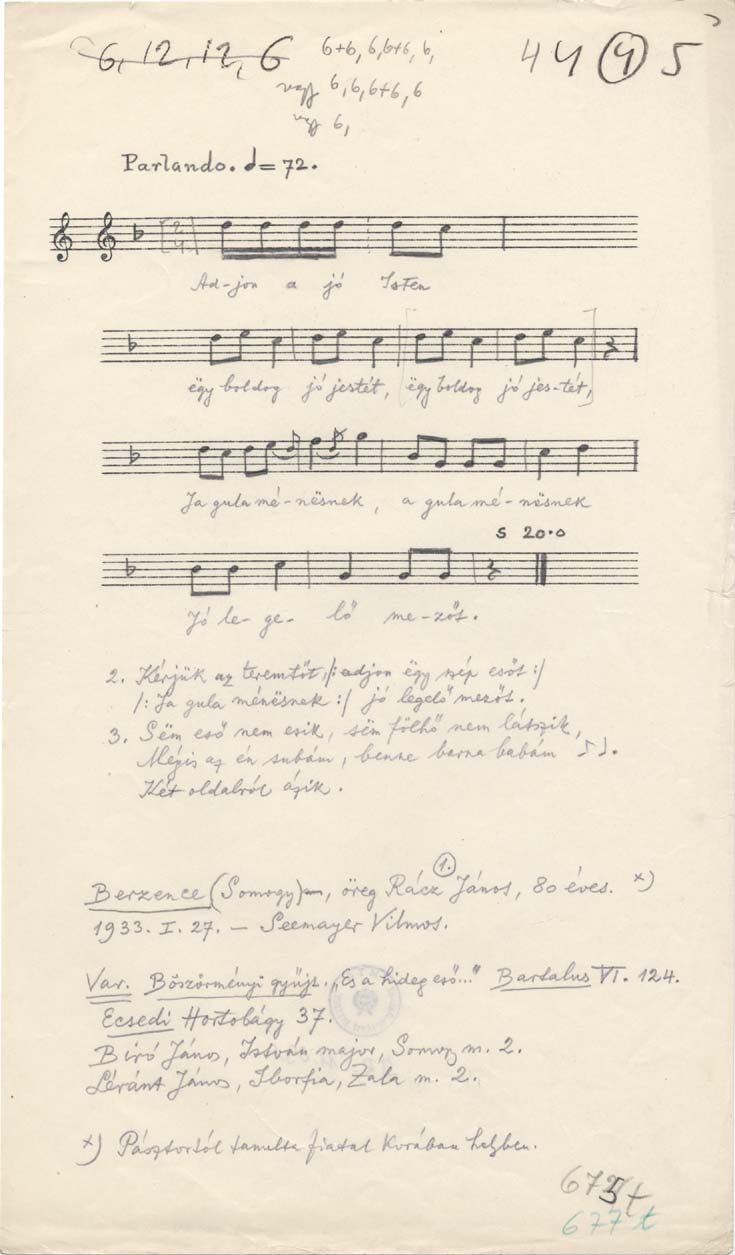 6, 12, 12, 6 6+6, 6, 6+6, 6, 44 4 5
vagy 6, 6, 6+6, 6
6,
Parlando. ♩= 72.
[2/4]
Ad-jon a jó Isten
ëgy boldog jó jestét, ëgy boldog jó jes-tét,
Ja gula mé-nësnek, a gula mé-nësnek
S 20.0
Jó le-ge-lő me-zőt.
2. Kérjük az teremtőt, /: adjon ëgy szép esőt :/
/: Ja gula ménësnek :/ jó legelő mezőt.
3. Sëm eső nem esik, sëm fölhő nem látszik,
Mégis az én subám, benne barna babám ♪♩.
Két oldalról ázik.
1.
Berzence (Somogy), öreg Rácz János, 80 éves. x)
1933. I. 27. — Seemayer Vilmos.
Var. Böszörményi gyűjt. „Es a hideg eső..." Bartalus VI. 124.
Ecsedi Hortobágy 37.
Bíró János, István major, Somogy m. 2.
Léránt János, Iborfia, Zala m. 2.
x) Pásztortól tanulta fiatal korában helyben.
675t
677 t